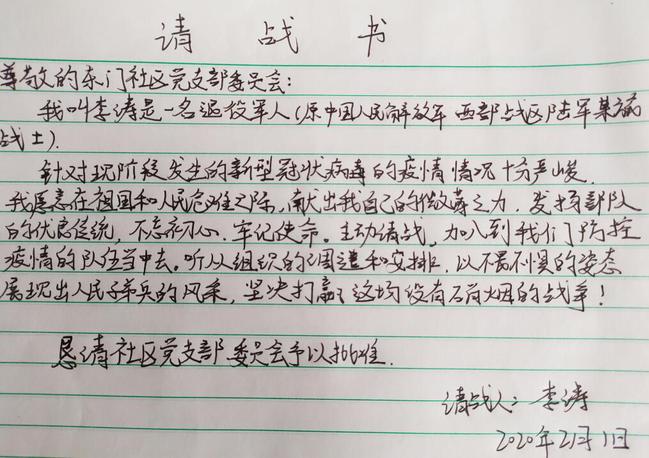 请战书
尊敬的东门社区党支部委员会:
我叫李涛是一名退役军人(原中国人民解放军西部战区陆军某旅
战士).
针对现阶段发生的新型冠状病毒的疫情情况十分严峻.
我愿意在祖国和人民危难之际,献出我自己的微薄之力,发扬部队
的优良传统,不忘初心.牢记使命。主动请战,加入到我们防控
疫情的队伍当中去。听从组织的调遣和安排,以不畏不惧的姿态
展现出人民子弟兵的风采,坚决打赢了这场没有硝烟的战争!
恳请社区党支部委员会予以批准.
请战人:李涛
2020年2月1日